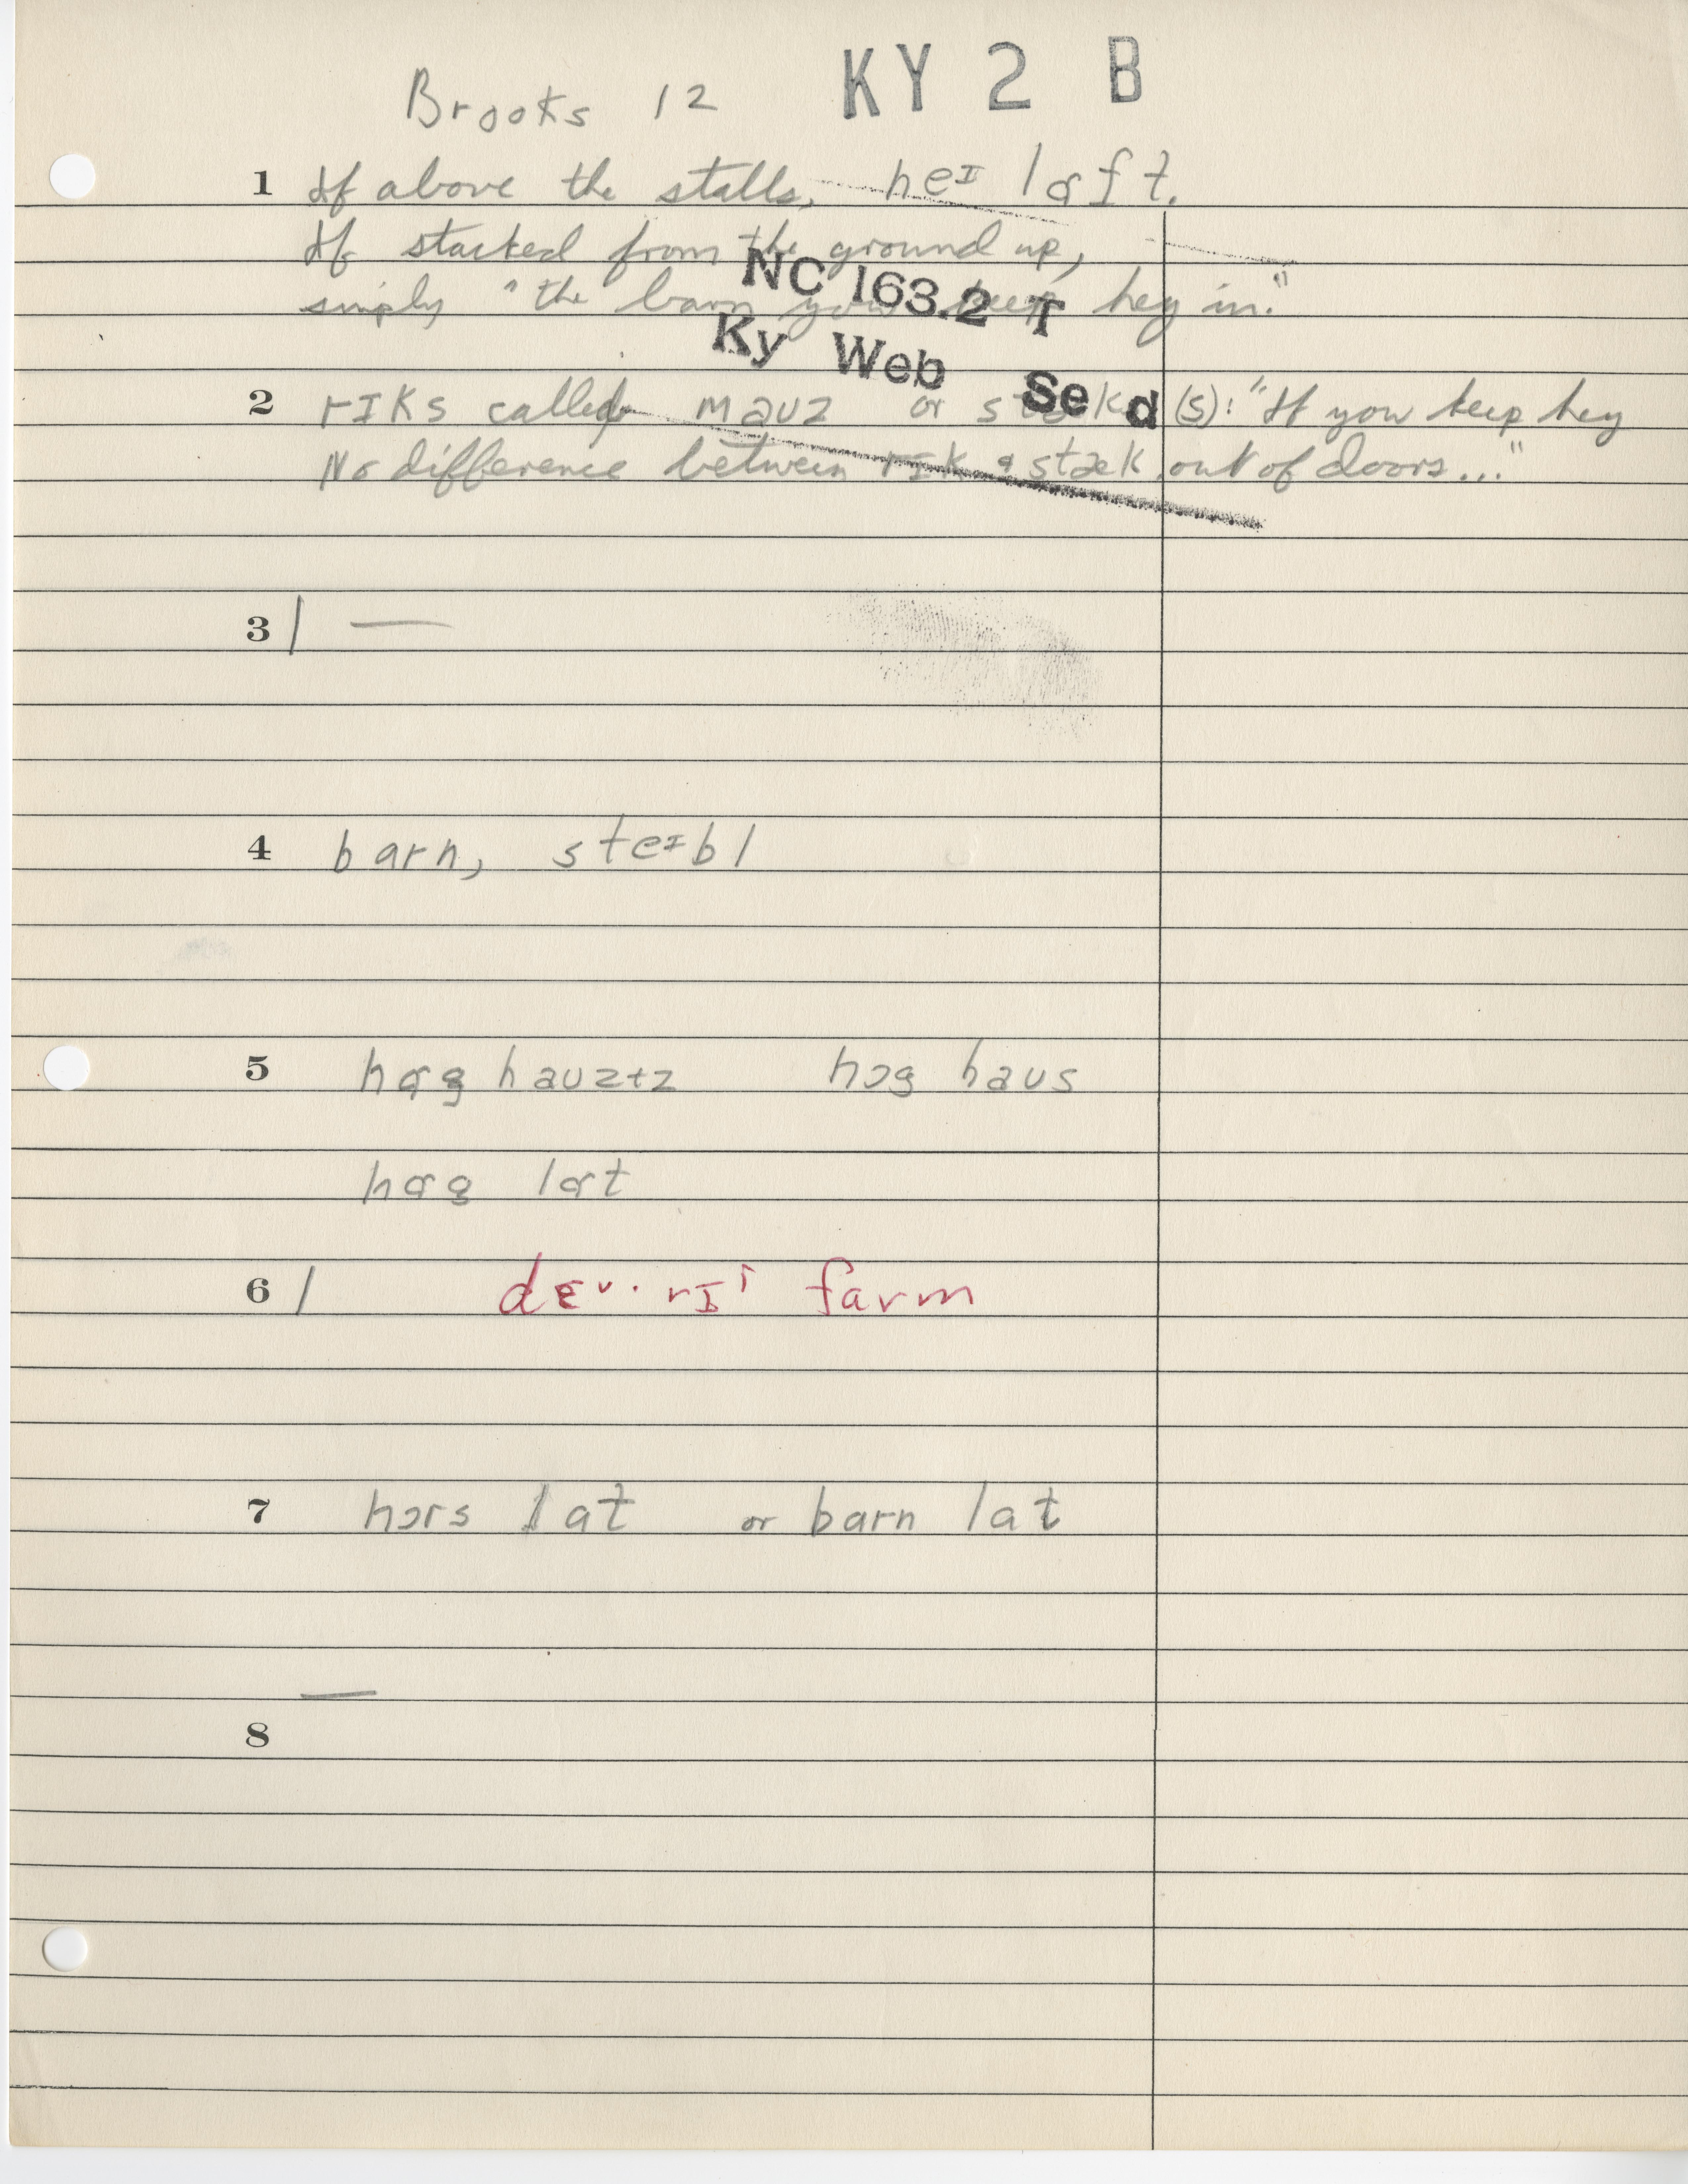 Brooks 12 KY 2 B
1 If above the stalls, heɪ lɑft.
If stacked from the ground up,
NC 163.2 T
simply "the barn you keep hey in."
Ky Web Se d
2 rɪks called mauz or (s): "If you keep hey
No difference between rɪk & stæk out of doors..."
3 / —
4 barn, steɪbl
5 hɑg hauzɨz hɔg haus
hɑg lɑt
6 / farm
7 hɔrs lat or barn lat
—
8